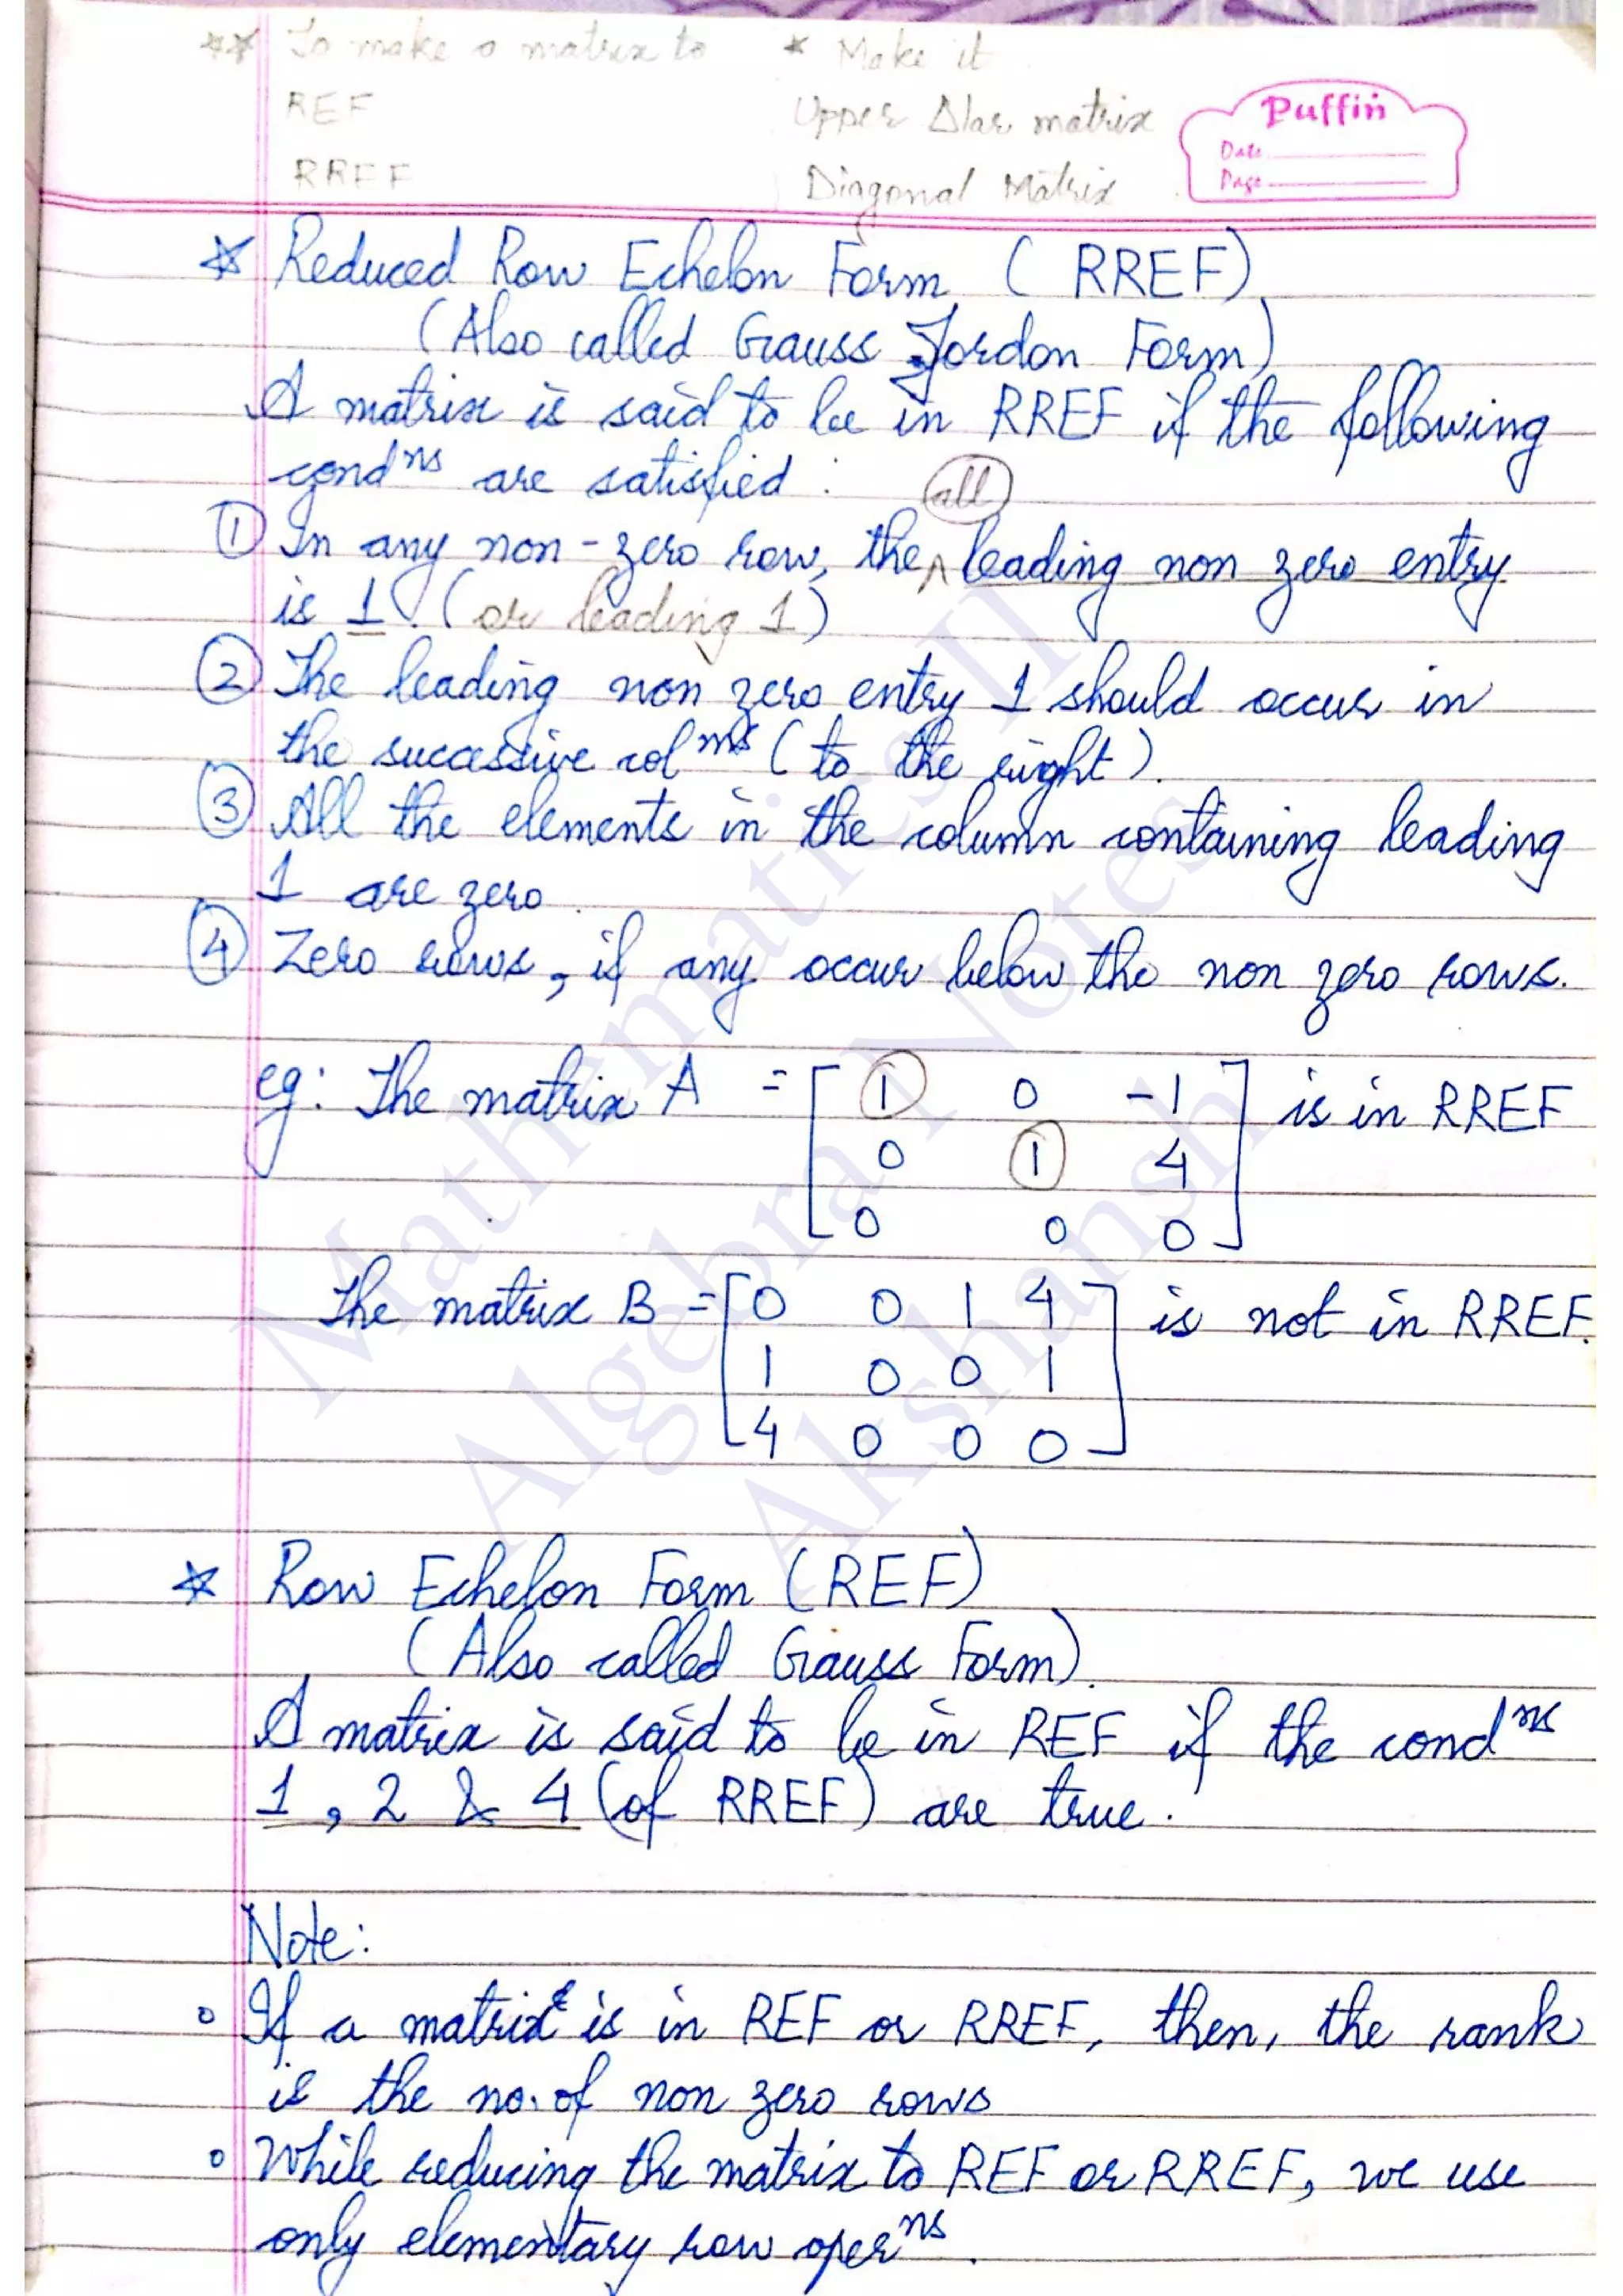 ** To make a matrix to * Make it
REF Upper Δlar matrix
RREF Diagonal Matrix
Puffin
Date
Page
* Reduced Row Echelon Form (RREF)
(Also called Gauss Jordon Form)
A matrix is said to be in RREF if the following
condns are satisfied :
① In any non-zero row, the ^ all leading non zero entry
is 1. (or leading 1)
② The leading non zero entry 1 should occur in
the successive colmns (to the right).
③ All the elements in the column containing leading
1 are zero.
④ Zero rows, if any occur below the non zero rows.
eg: The matrix A = [ 1 0 -1 ] is in RREF
0 1 4
0 0 0
The matrix B = [ 0 0 1 4 ] is not in RREF.
1 0 0 1
4 0 0 0
* Row Echelon Form (REF)
(Also called Gauss Form).
A matrix is said to be in REF if the condns
1, 2 & 4 (of RREF) are true.
Note:
o If a matrix is in REF or RREF, then, the rank
is the no. of non zero rows
o While reducing the matrix to REF or RREF, we use
only elementary row operns.
Mathematics II
Algebra Notes
Akshansh